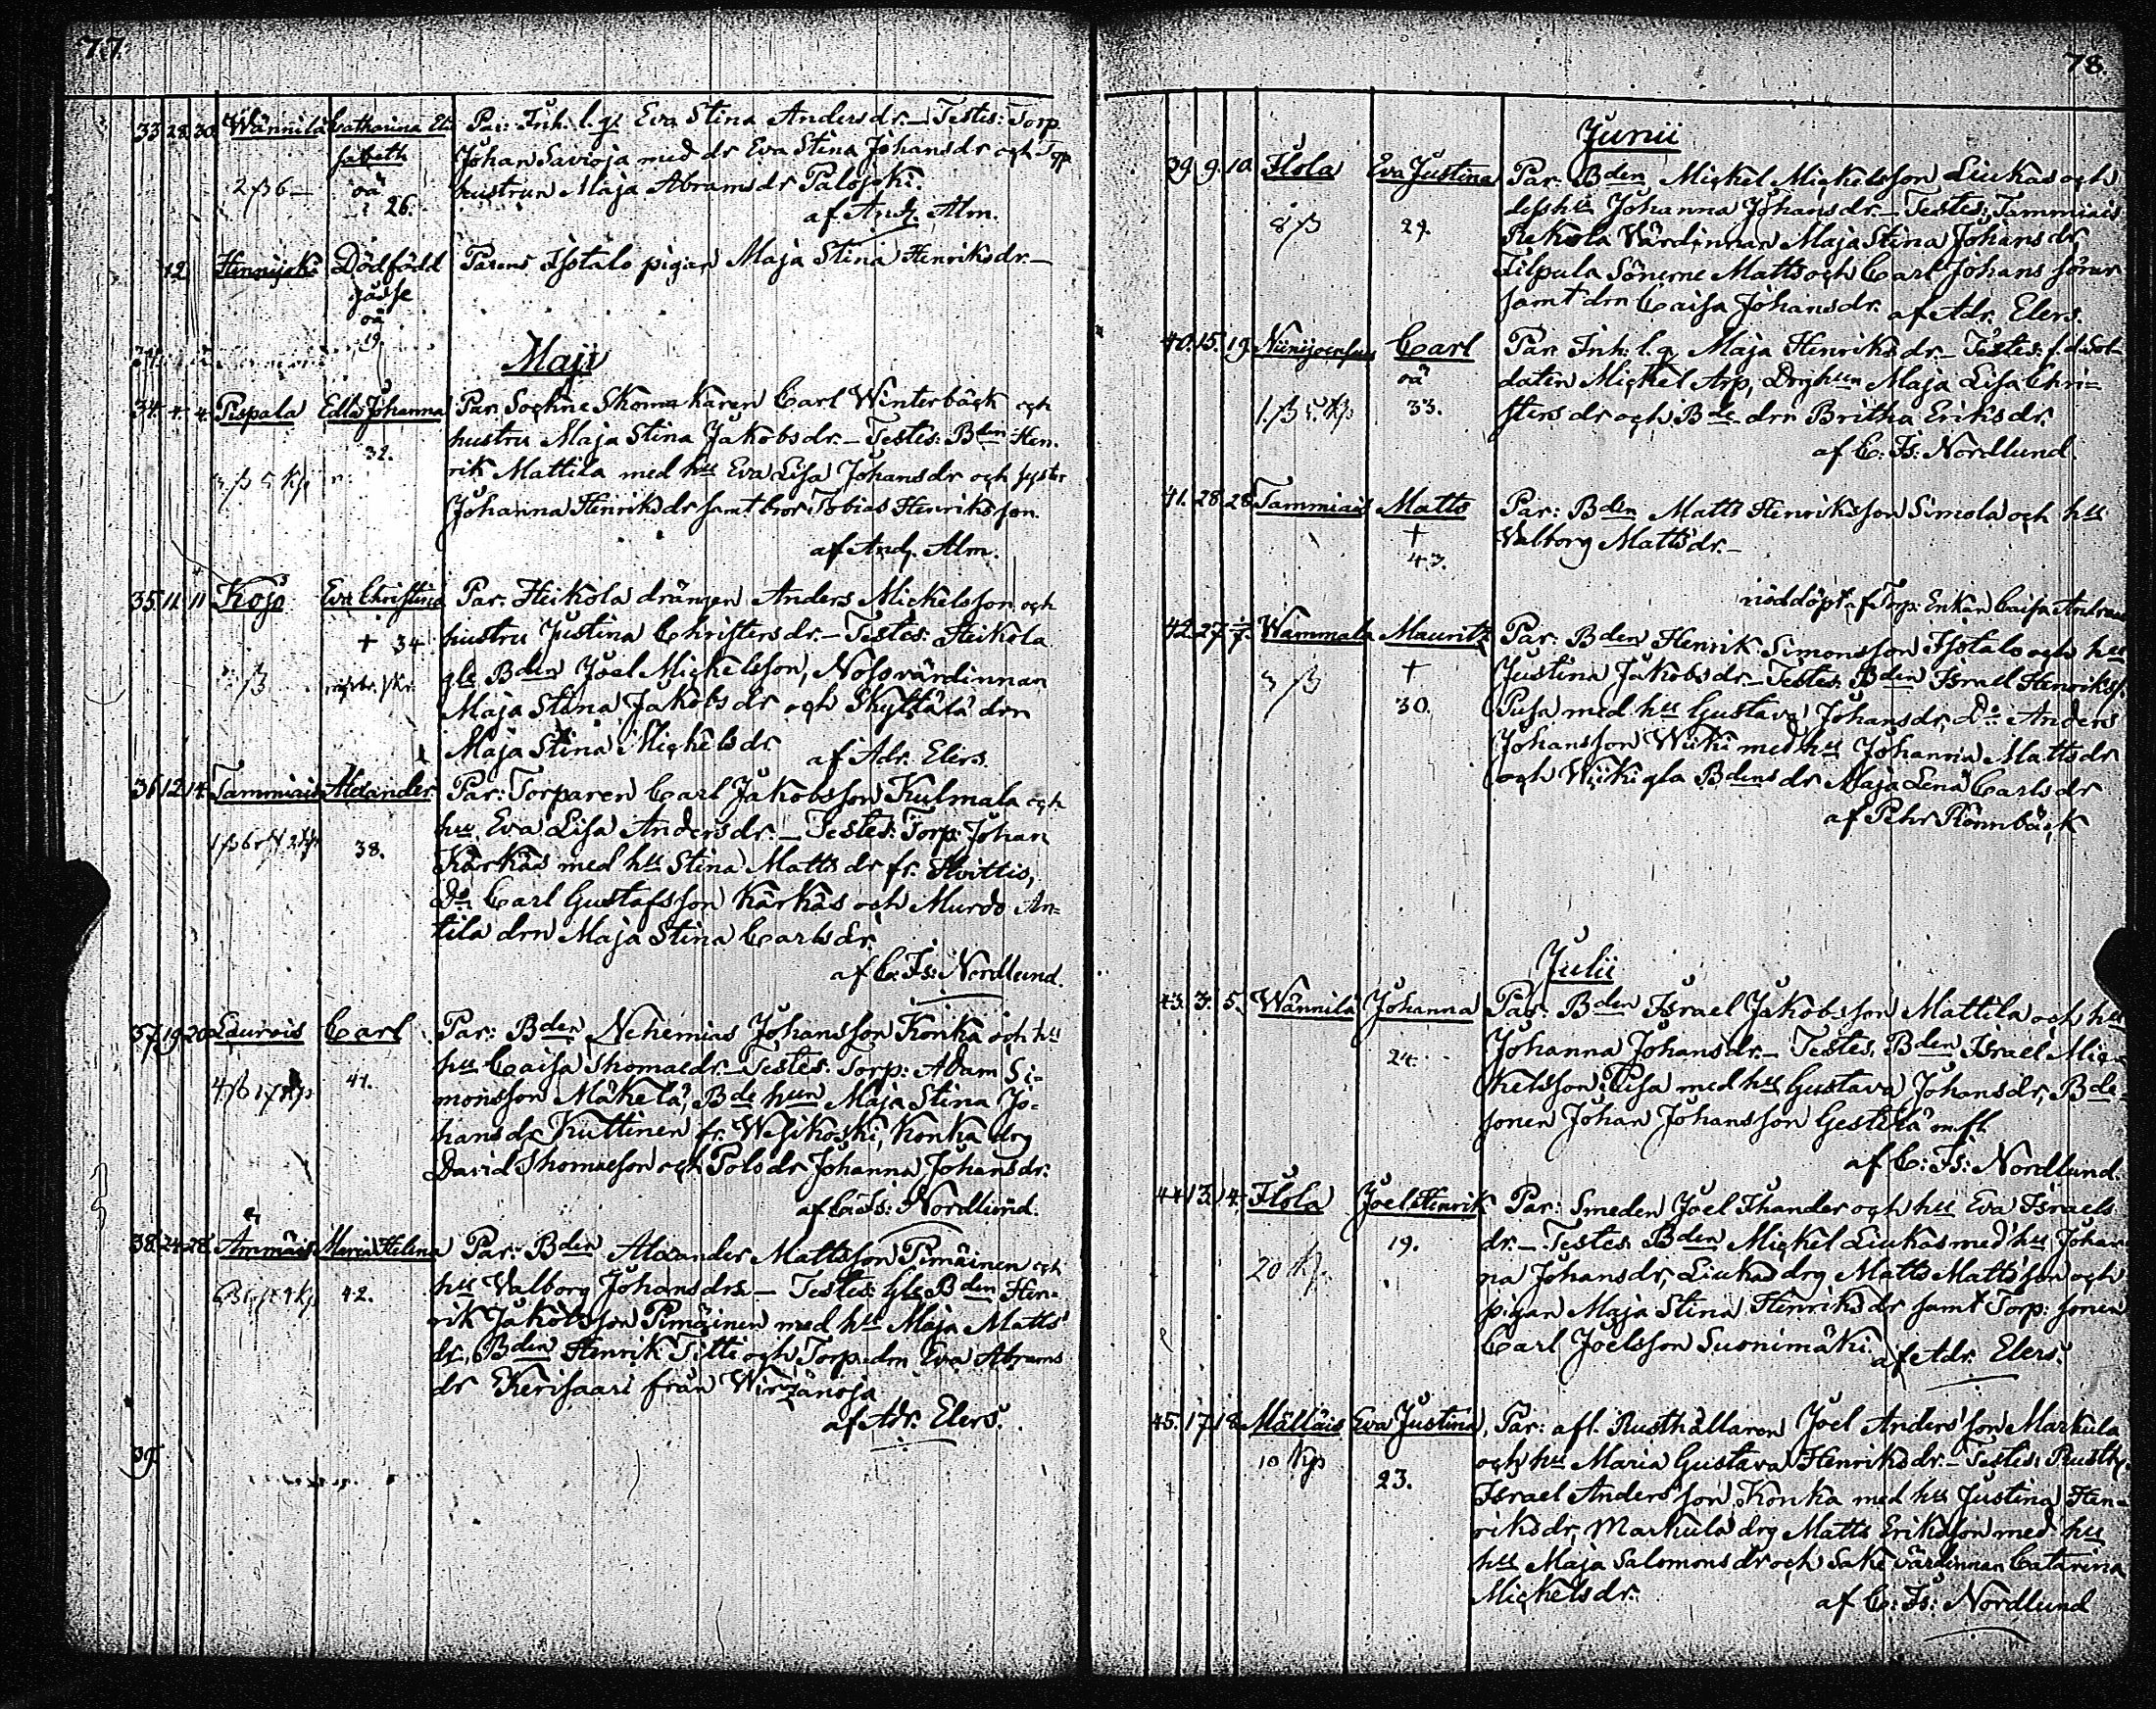 77.
33 28. 30. Wännilä Catharina Eli Par: Inh. l. q. Eva Stina Andersdr. – Testes: Torp.
sabeth Johan Savioja med dr Eva Stina Johansdr och Torp
2 ß 6 – oä hustrun Maja Abramsdr Palojoki.
26. af And. Alm.
12 Dödfödd Parens Isotalo pigan Maja Stina Henriksdr. –
gosse
oä
19.
Maji
34. 4. 4. Pispala Edla Johanna Par. Sockne Skomakaren Carl Winterbäck och
32. hustru Maja Stina Jakobsdr. – Testes: Bden Hen-
rik Mattila med hu Eva Lisa Johansdr och syster
Johanna Henriksdr samt bror Tobias Henriksson.
af And. Alm.
35. 11. 11 Kojo Eva Christina Par. Heikola drängen Anders Mickelsson och
+ 34 hustru Justina Christersdr. – Testes: Heikola
gle Bden Joel Mickelsson, Nossvärdinnan
Maja Stina Jakobsdr och Skyttälä drn
Maja Stina Mickelsdr af Adr. Elers.
36 12 14. Tammiais Alexander Par: Torparen Carl Jakobsson Kulmala och
hu Eva Lisa Andersdr. – Testes: Torp: Johan
38. Kärkäs med hu Stina Mattsdr fr. Hvittis,
Do Carl Gustafsson Kärkäs och Murdo An-
tila drn Maja Stina Carlsdr.
af C: Fs: Nordlund.
37. 19. 20. Laurois Carl Par: Bden Nehemias Johansson Konka och hu
41. hu Caisa Thomaedr. – Testes: Torp: Adam Si-
monsson Mäkelä, Bde hun Maja Stina Jo-
hansdr Kuttinen fr. Wesikoski, Konka drg
David Thomasson och Polsdr Johanna Johansdr.
af C: Fs: Nordlund.
38. 24. 28. Ammäis Maria Helena Par: Bden Alexander Mattsson Pimäinen och
42. hu Valborg Johansdr. – Testes: Gle Bden Hen-
rik Jakobsson Pimäinen med hu Maja Matts
dr, Bden Henrik Titti och Torp. drn Eva Abrams
dr Kerisaari från
af Adr. Elers.
39.
78.
Junii
39. 9. 10. Illola Eva Justina Par. Bden Mickel Mickelsson Liukas och
dess hu Johanna Johansdr. – Testes: Tammiais
8 ß 29. Rekola Värdinnan Maja Stina Johansdr,
Filpula Sönerne Matts och Carl Johans söner
samt drn Caisa Johansdr. af Adr. Elers.
40. 15. 19. Niinijoensuu Carl Par Inh: l. q. Maja Henriksdr. – Testes: f. d. Sol-
oä daten Mickel Arp, Drghun Maja Lisa Chri-
33. stersdr och Bde drn Britha Eriksdr.
af C: Fs: Nordlund.
41. 28. 28. Tammiais Matts Par: Bden Matts Henriksson Simola och hu
+ Valborg Mattsdr. –
43.
nöddöpt af Torp: Enkan Caisa
42. 27 Wammala Mauritz Par: Bden Henrik Simonsson Isotalo och hu
+ Justina Jakobsdr. – Testes: Bden Israel Henrikss.
3 ß 30. Pusa med hu Gustava Johansdr, Do Anders
Johansson Wiiki med hu Johanna Mattsdr
och Wiiki gla Bdens dr Maja Lena Carlsdr
af Pehr Rönnbäck
Julii
43. 3. 5. Wännilä Johanna Par. Bden Israel Jakobsson Mattila och hu
24. Johanna Johansdr. – Testes: Bden Israel Mic-
kelsson Pusa med hu Gustava Johansdr, Bde
sonen Johan Johansson Gestilä m. fl.
af C: Fs: Nordlund.
44. 13. 14. Illola Joel Henrik Par: Smeden Joel Thander och hu Eva Israels
19. dr. – Testes: Bden Mickel Liukas med hu Johan
20 Kp na Johansdr, Liukas drg Matts Mattsson och
pigan Maja Stina Henriksdr samt Torp: sonen
Carl Joelsson Suonimäki.
af Adr. Elers.
45. 17. 18. Mälläis Eva Justina, Par: afl. Rusthållaren Joel Andersson Markula
10 Kp 23. och hu Maria Gustava Henriksdr. – Testes: Rusth.
Israel Andersson Konka med hu Justina Hen-
riksdr, Markula drg Matts Eriksson med hu
hu Maja Salomonsdr och Sake värdinnan Catarina
Mickelsdr. af C: Fs: Nordlund